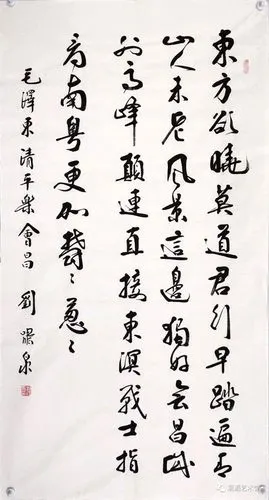 東方欲曉莫道君行早踏遍青
山人未老風景這邊獨好會昌城
外高峰顛連直接東溟戰士指
看南粵更加鬱〻蔥〻
毛澤東清平樂會昌 劉泉